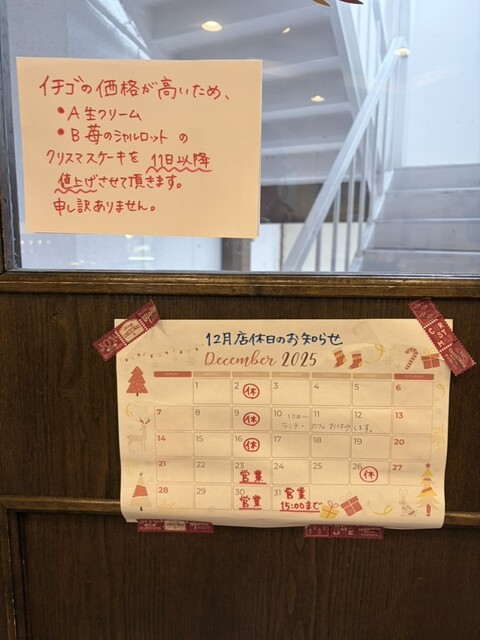 イチゴの価格が高いため、
・A 生クリーム
・B 苺のシャルロット の
クリスマスケーキを 11日以降
値上げさせて頂きます。
申し訳ありません。
12月店休日のお知らせ
December 2025
1 2 休 3 4 5 6
7 8 9 休 10 10日〜 11 12 13
ランチ・カフェ お休みします。
14 15 16 休 17 18 19 20
21 22 23 営業 24 25 26 休 27
28 29 30 営業 31 営業
15:00まで